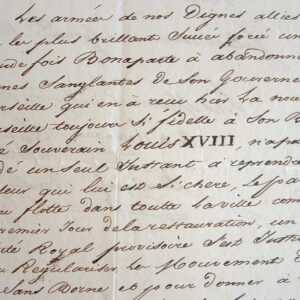 Les armées de nos Dignes alliés
les plus brillant Succè forcé un
de fois Bonaparte à abandonne
nes Sanglantes de Son Gouverne
rseille qui en a reçu hier la nou
seille toujour Si fidelle à Son B
Souverain Louis XVIII, n'a pa
dé un seul Instant a reprendre
leur qui lui est Si chere, le pa
flotte dans toutte la ville com
premier Jour de la restauration, un
té Royal provisoire S'est Inst
Regulariser le Mouvement
Sans Borne et pour donner à